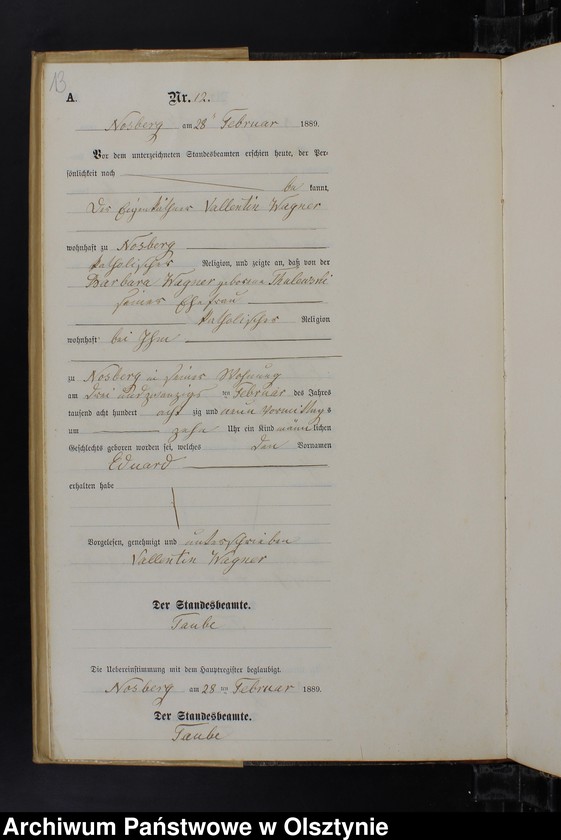 13
A. Nr. 12.
Nosberg am 28 Februar 1889.
Vor dem unterzeichneten Standesbeamten erschien heute, der Per-
sönlichkeit nach
be kannt,
Der Eigenkäthner Vallentin Wagner
wohnhaft zu Nosberg
katholischer Religion, und zeigte an, daß von der
Barbara Wagner geborene Thalewski
seiner Ehefrau
katholischer Religion
wohnhaft bei Ihm
zu Nosberg in seiner Wohnung
am drei und zwanzigs ten Februar des Jahres
tausend acht hundert acht zig und neun Vormittags
um zehn Uhr ein Kind männ lichen
Geschlechts geboren worden sei, welches den Vornamen
Eduard
erhalten habe
Vorgelesen, genehmigt und unterschrieben
Vallentin Wagner
Der Standesbeamte.
Taube
Die Uebereinstimmung mit dem Hauptregister beglaubigt.
Nosberg am 28 ten Februar 1889.
Der Standesbeamte.
Taube
Archiwum Państwowe w Olsztynie